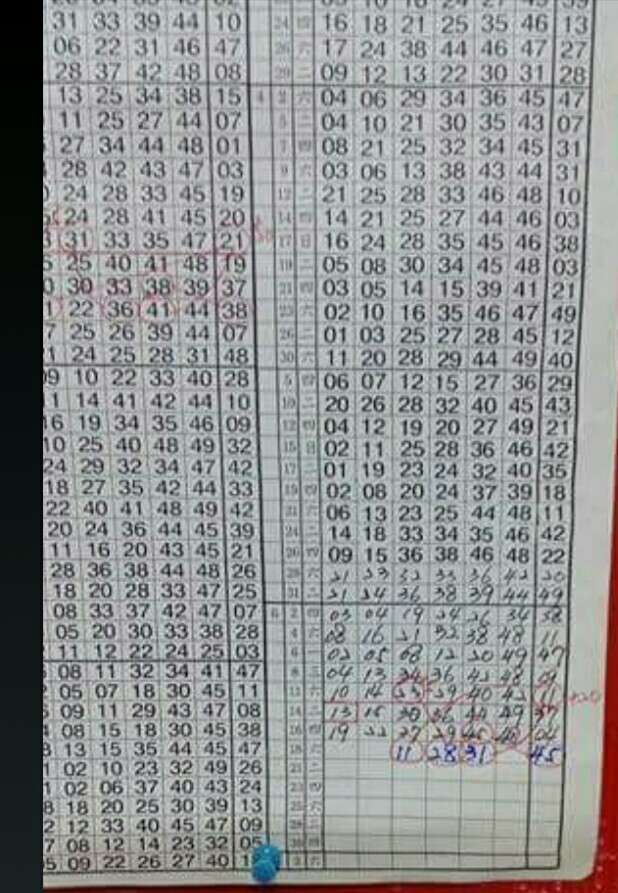 31 33 39 44 10 24 四 16 18 21 25 35 46 13
06 22 31 46 47 26 六 17 24 38 44 46 47 27
28 37 42 48 08 09 12 13 22 30 31 28
13 25 34 38 15 4 2 六 04 06 29 34 36 45 47
11 25 27 44 07 5 二 04 10 21 30 35 43 07
27 34 44 48 01 7 四 08 21 25 32 34 45 31
28 42 43 47 03 9 六 03 06 13 38 43 44 31
24 28 33 45 19 12 二 21 25 28 33 46 48 10
24 28 41 45 20 14 四 14 21 25 27 44 46 03
31 33 35 47 21 17 日 16 24 28 35 45 46 38
25 40 41 48 19 19 二 05 08 30 34 45 48 03
30 33 38 39 37 21 四 03 05 14 15 39 41 21
22 36 41 44 38 23 六 02 10 16 35 46 47 49
25 26 39 44 07 26 二 01 03 25 27 28 45 12
24 25 28 31 48 30 六 11 20 28 29 44 49 40
09 10 22 33 40 28 5 四 06 07 12 15 27 36 29
14 41 42 44 10 10 二 20 26 28 32 40 45 43
16 19 34 35 46 09 12 四 04 12 19 20 27 49 21
10 25 40 48 49 32 15 日 02 11 25 28 36 46 42
24 29 32 34 47 42 17 二 01 19 23 24 32 40 35
18 27 35 42 44 33 19 四 02 08 20 24 37 39 18
22 40 41 48 49 42 21 六 06 13 23 25 44 48 11
20 24 36 44 45 39 24 二 14 18 33 34 35 46 42
11 16 20 43 45 21 26 四 09 15 36 38 46 48 22
28 36 38 44 48 26 28 六 21 23 32 33 36 42 20
18 20 28 33 47 25 31 二 21 24 36 38 39 44 49
08 33 37 42 47 07 6 四 03 04 19 24 26 34 38
05 20 30 33 38 28 4 六 08 16 21 32 38 48 11
11 12 22 24 25 03 6 一 02 05 08 12 20 49 47
08 11 32 34 41 47 8 三 04 13 34 36 42 48 09
05 07 18 30 45 11 11 六 10 14 23 29 40 42 11 +20
09 11 29 43 47 08 14 二 13 15 30 36 44 49 37
08 15 18 30 45 38 16 四 19 22 27 29 45 04
13 15 35 44 45 47 18 六 11 28 31 45
02 10 23 32 49 26 21 二
02 06 37 40 43 24 23 四
18 20 25 30 39 13 25 六
12 33 40 45 47 09 28 二
08 12 14 23 32 05 30 四
09 22 26 27 40 六